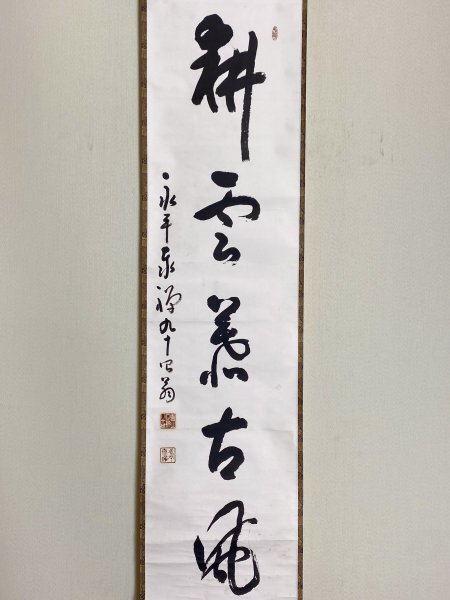 耕雲慕古風
永平泰禅九十四翁